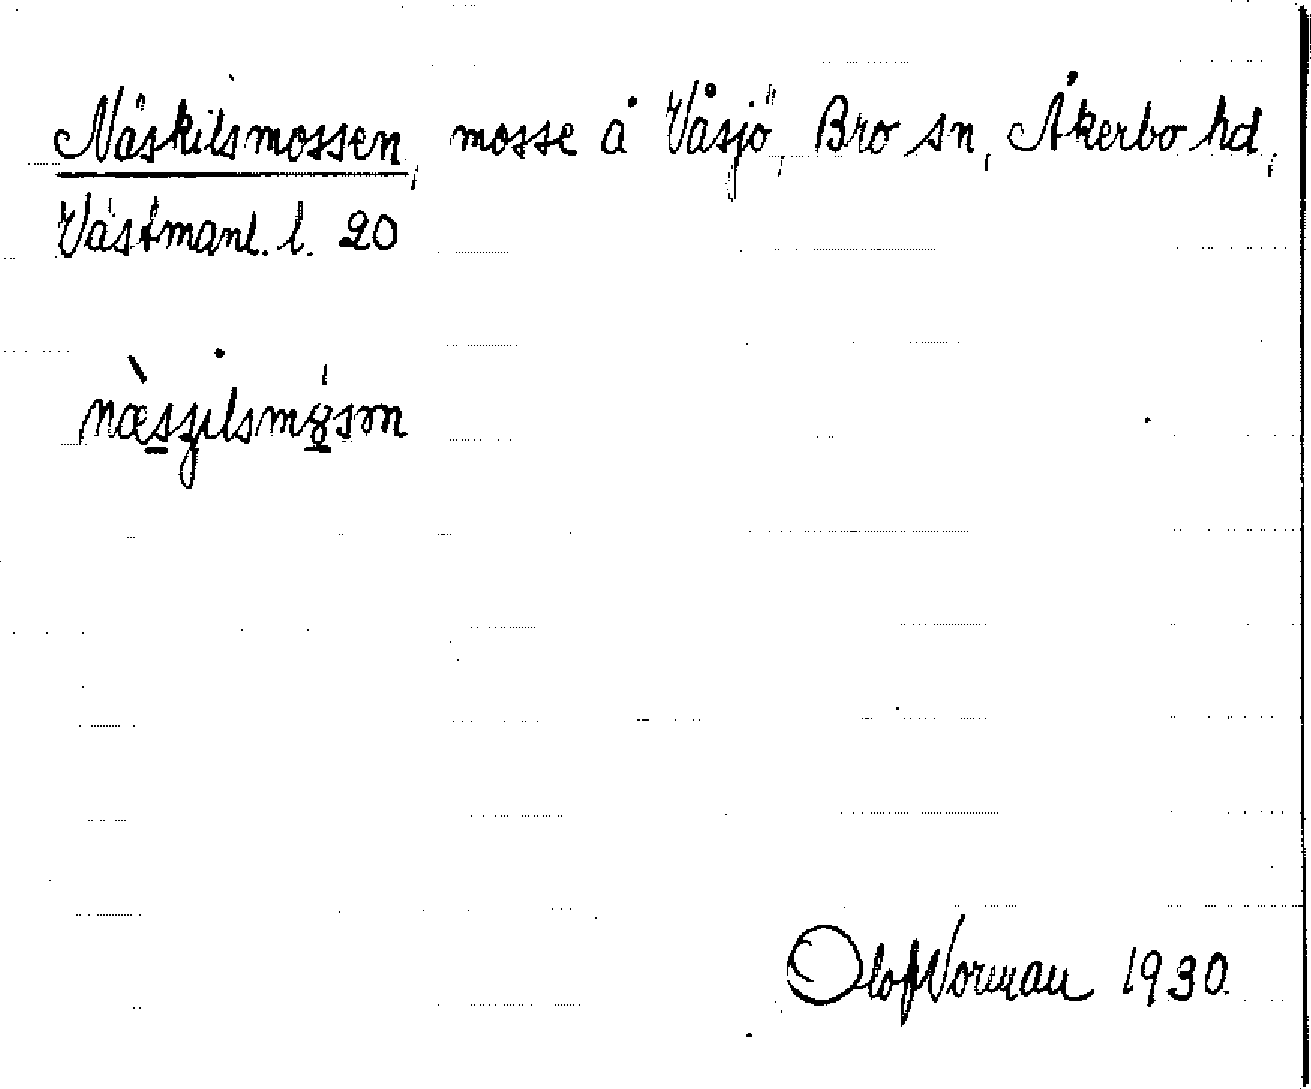 Näskilsmossen, mosse å Våsjö, Bro sn, Åkerbo hd,
Västmanl. l. 20
Olof Norman 1930